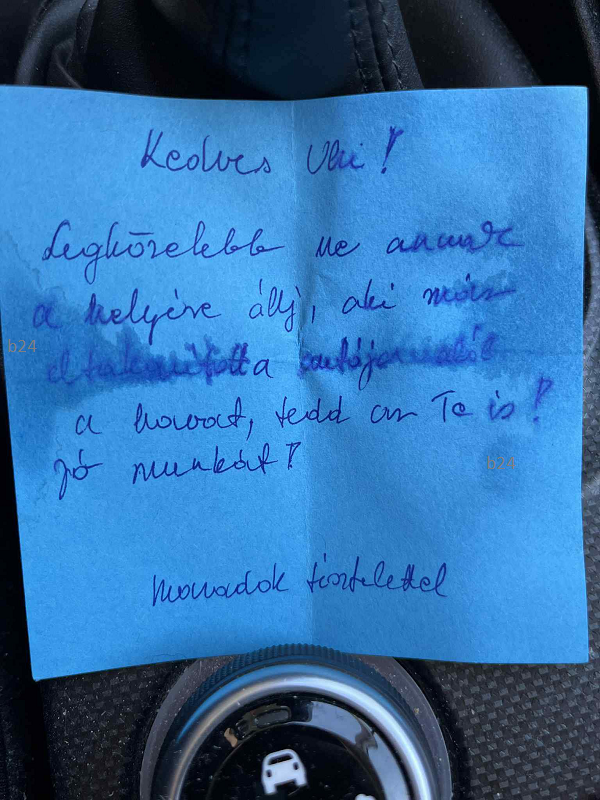 Kedves Uki!
Legközelebb ne annak
a helyére állj, aki már
eltakarította autójarmától
a havat, tedd az Te is!
Jó munkát!
Maradok tisztelettel
b24
b24